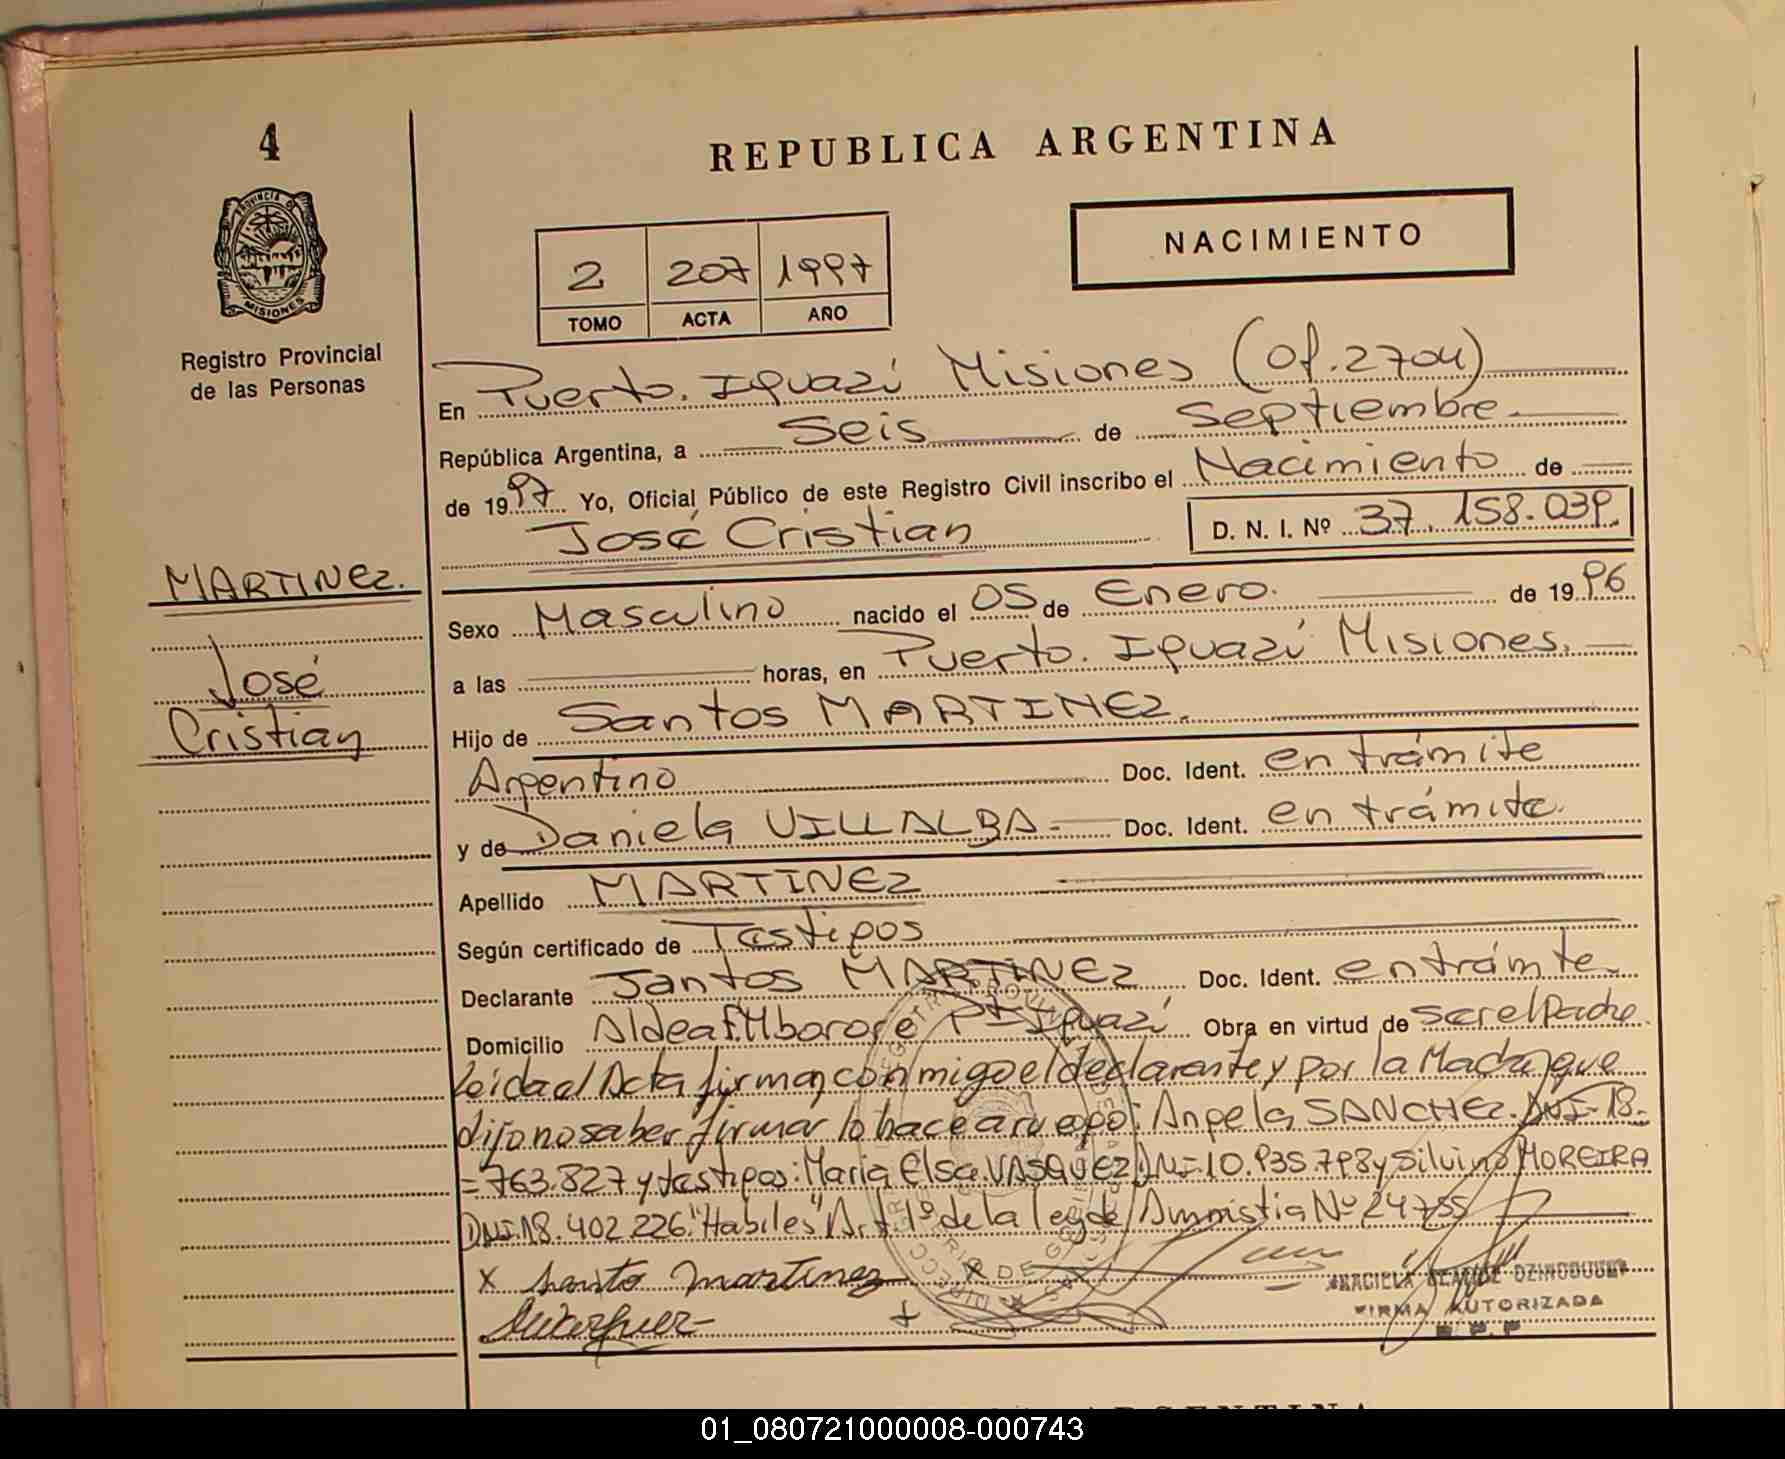 4
REPUBLICA ARGENTINA
PROVINCIA DE
MISIONES
NACIMIENTO
2 207 1997
TOMO ACTA AÑO
Registro Provincial
de las Personas
En Puerto. Iguazú Misiones (Of. 2704)
República Argentina, a Seis de Septiembre
de 1997 Yo, Oficial Público de este Registro Civil inscribo el Nacimiento de
José Cristian D. N. I. Nº 37.158.039.
MARTINEZ.
José
Cristian
Sexo Masculino nacido el 05 de Enero. de 1996
a las horas, en Puerto. Iguazú Misiones.
Hijo de Santos MARTINEZ.
Argentino Doc. Ident. en trámite
y de Daniela VILLALBA- Doc. Ident. en trámite.
Apellido MARTINEZ
Según certificado de Testigos
Declarante Santos MARTINEZ Doc. Ident. en trámite
Domicilio Aldea F. Mborore Pto Iguazú Obra en virtud de Ser el Padre
Leida el Acta firman conmigo el declarante y por la Madre que
dijo no saber firmar lo hace a ruego: Angela SANCHEZ. DNI-18.
=763.827 y testigos: Maria Elsa VASQUEZ DNI-10.935.798 y Silvino MOREIRA
DNI.18.402.226. "Habiles" Art. 1º de la ley de Amnistia Nº 24755
x santo martinez
FIRMA AUTORIZADA
R. P. P.
01_080721000008-000743